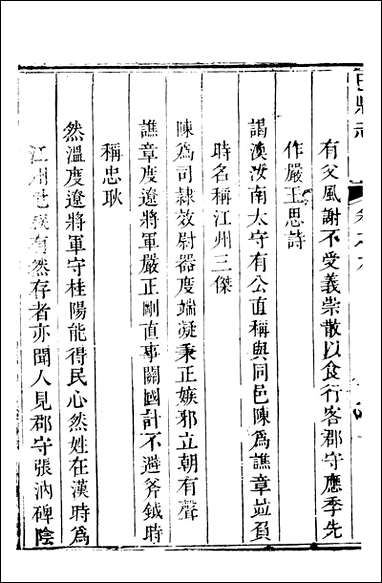 有父風謝不受義崇散以食行客郡守應季先
作嚴王思詩
謁漢汝南太守有公直稱與同邑陳為譙章並負
時名稱江州三傑
陳為司隷效尉器度端凝秉正嫉邪立朝有聲
譙章度遼將軍嚴正剛直事關國計不避斧鉞時
稱忠耿
然溫度遼將軍守桂陽能得民心然姓在漢時為
江州有然存者亦聞人見郡守張汭碑陰